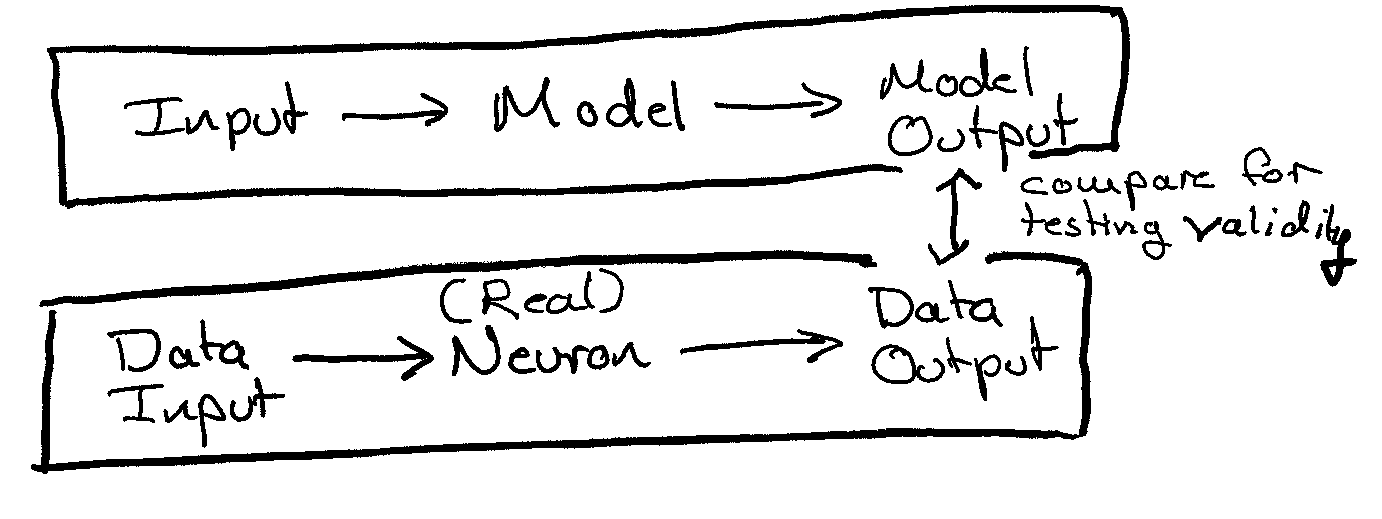 Input → Model → Model
Output
compare for
testing validity
(Real)
Data → Neuron → Data
Input Output